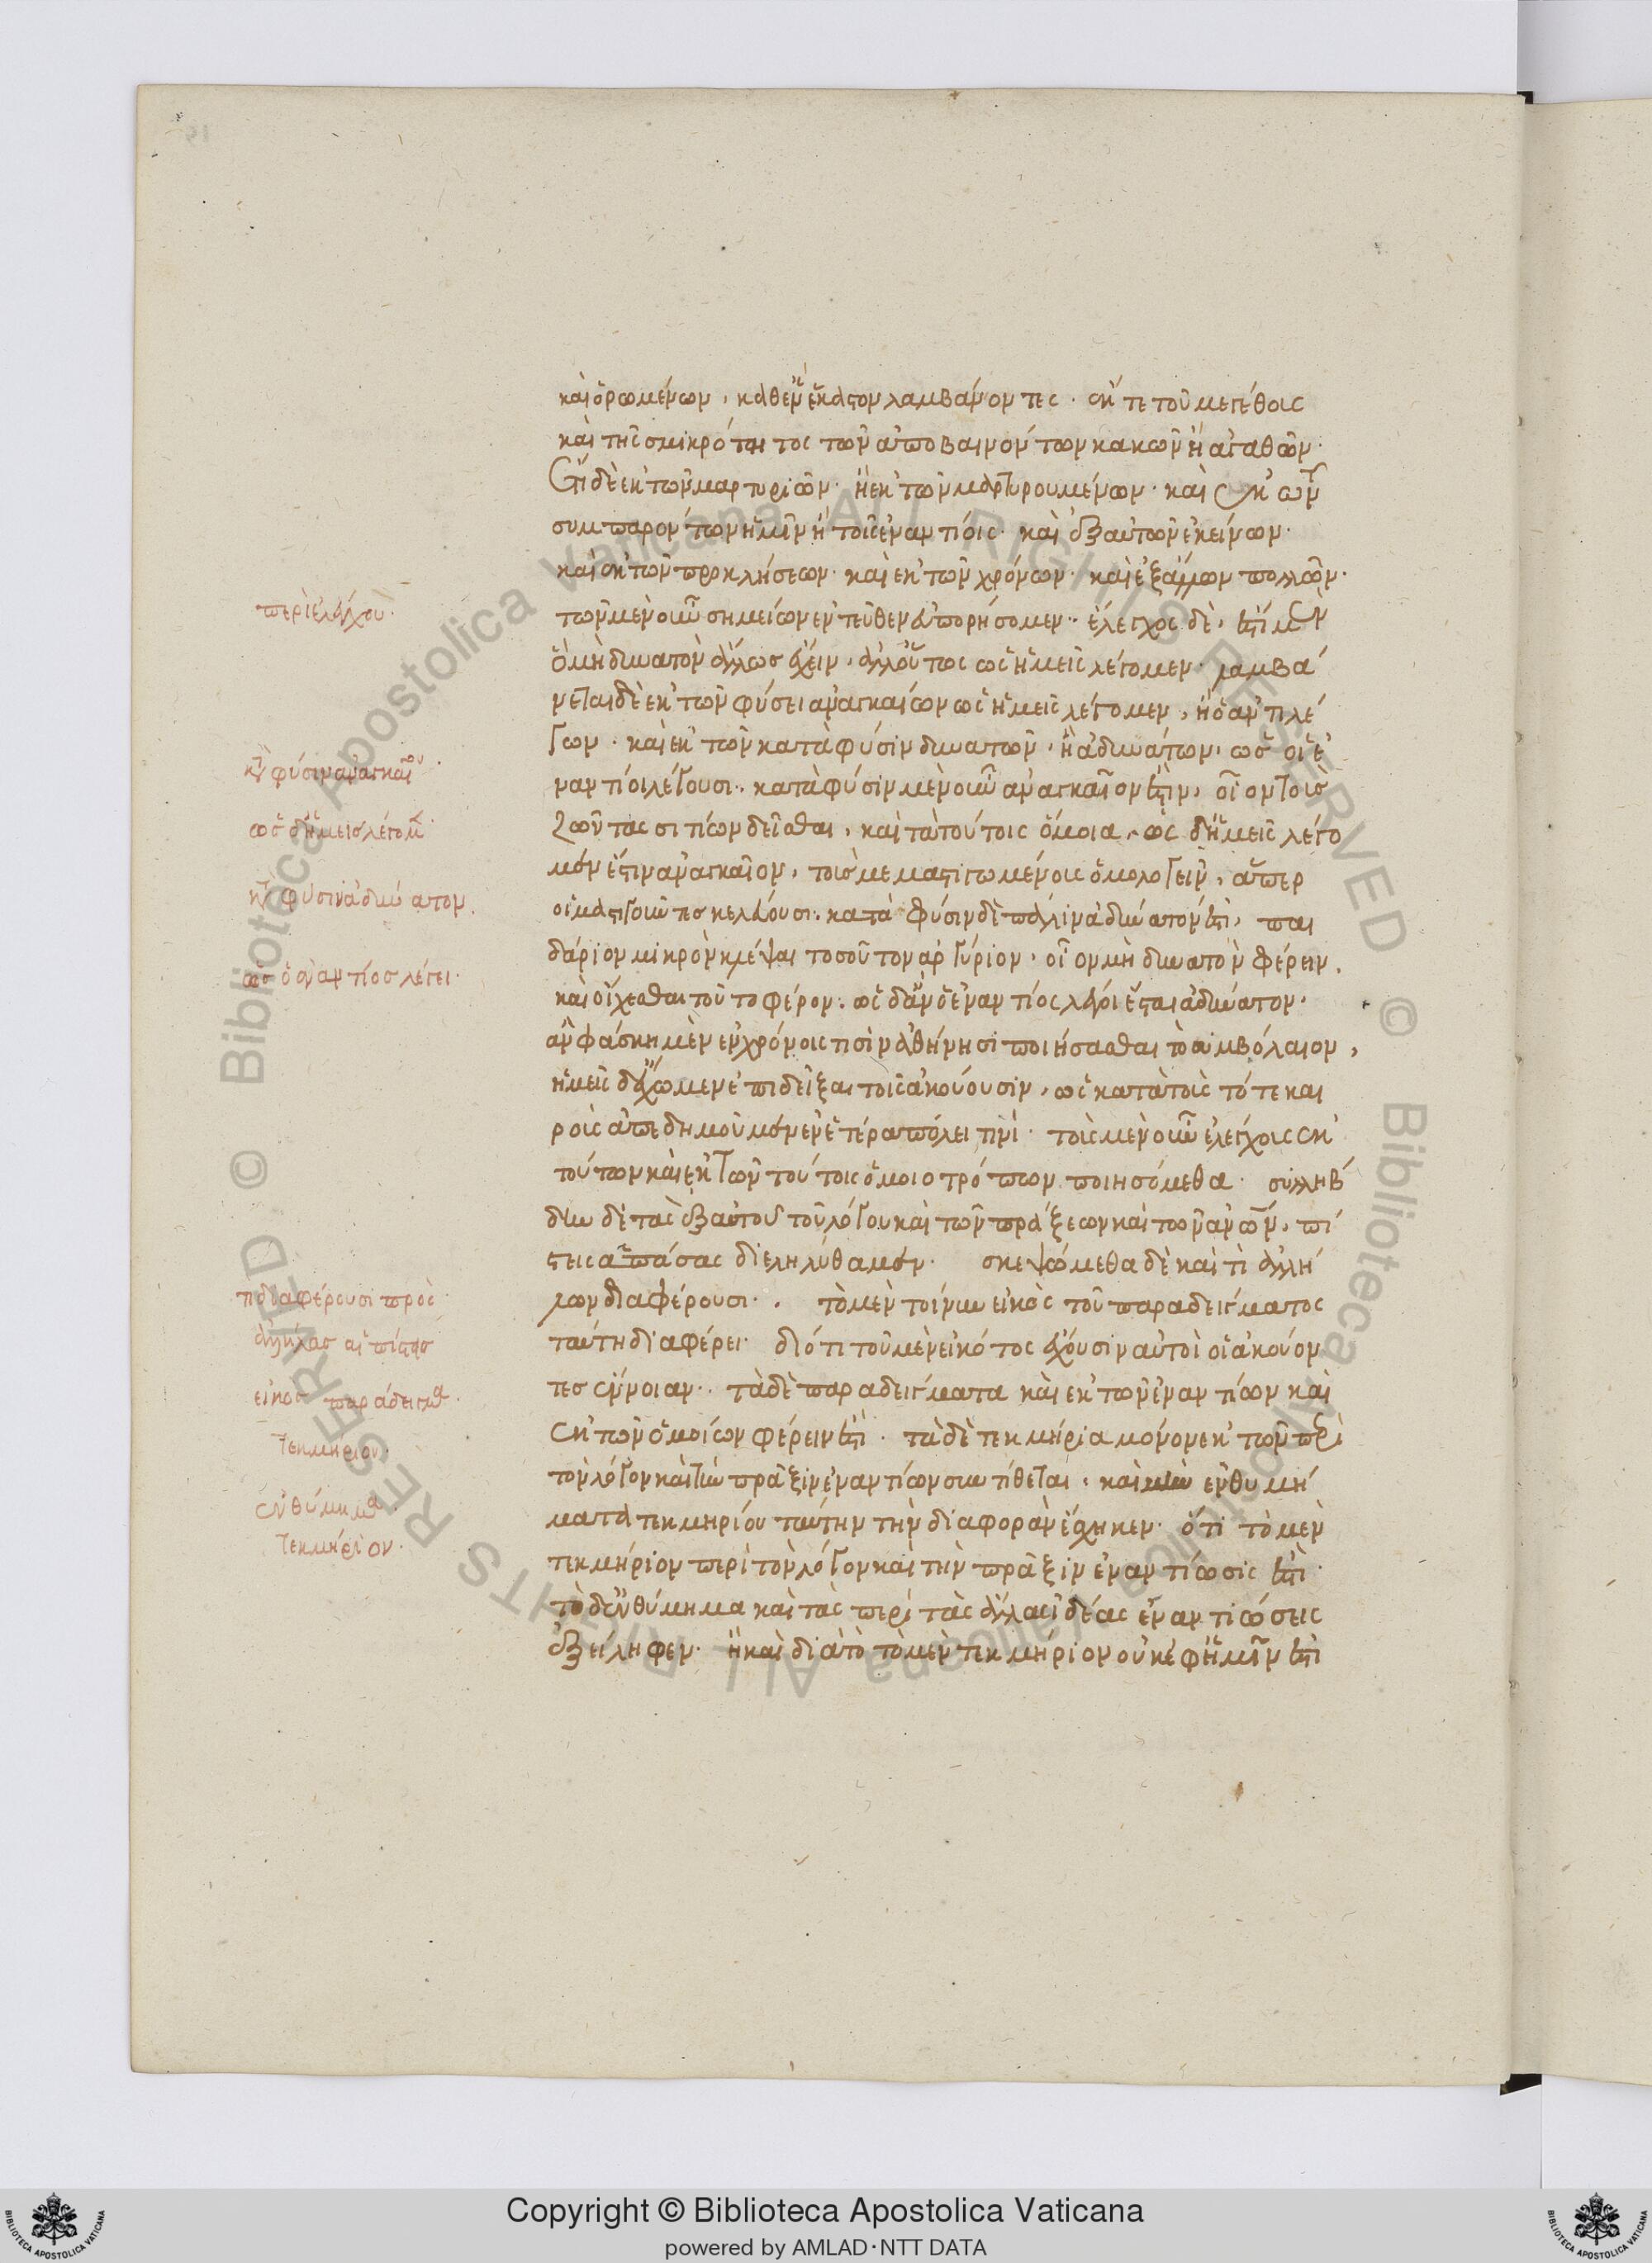 καὶ ὁρωμένων, καθὲν ἕκαστον λαμβάνοντες. ἔκ τε τοῦ μεγέθους
καὶ τῆς σμικρότητος τῶν ἀποβαινόντων κακῶν ἢ ἀγαθῶν.
ἔτι δὲ ἐκ τῶν μαρτυριῶν. ἢ ἐκ τῶν μαρτυρουμένων. καὶ ἐκ τῶν
συμπαρόντων ἡμῖν ἢ τοῖς ἐναντίοις. καὶ ἐξ αὐτῶν ἐκείνων.
καὶ ἐκ τῶν προκλήσεων. καὶ ἐκ τῶν χρόνων. καὶ ἐξ ἄλλων πολλῶν.
περὶ ἐλέγχου.
τῶν μὲν οὖν σημείων ἐντεῦθεν εὐπορήσομεν. ἔλεγχος δὲ, ἐστὶ μὲν
ὃ μὴ δυνατὸν ἄλλως ἔχειν, ἀλλ' οὕτως ὡς ἡμεῖς λέγομεν. λαμβά
νεται δὲ ἐκ τῶν φύσει ἀναγκαίων ὡς ἡμεῖς λέγομεν, ἢ ὁ ἀντιλέ
γων. καὶ ἐκ τῶν κατὰ φύσιν δυνατῶν, ἢ ἀδυνάτων, ὡς οἱ ἐ
κατὰ φύσιν ἀναγκαῖον.
ναντίοι λέγουσι. κατὰ φύσιν μὲν οὖν ἀναγκαῖον ἐστὶν, οἷον τοὺς
ὡς δ' ἡμεῖς λέγομεν.
ζῶντας σιτίων δεῖσθαι, καὶ τὰ τούτοις ὅμοια. ὡς δ' ἡμεῖς λέγο
μέν ἐστιν ἀναγκαῖον, τοὺς μεμαστιγωμένους ὁμολογεῖν, ἅπερ
κατὰ φύσιν ἀδύνατον.
οἱ μαστιγοῦντες κελεύουσι. κατὰ φύσιν δὲ πάλιν ἀδύνατόν ἐστι, παι
δάριον μικρὸν κλέψαι τοσοῦτον ἀργύριον, οἷον μὴ δυνατὸν φέρειν,
ὡς ὁ ἐναντίος λέγει.
καὶ οἴχεσθαι τοῦτο φέρον. ὡς δ' ἂν ὁ ἐναντίος λέγοι ἔσται ἀδύνατον.
ἂν φάσκη μὲν ἐν χρόνοις τισὶν ἀθήνησι ποιήσασθαι τὸ συμβόλαιον,
ἡμεῖς δ' ἔχωμεν ἐπιδεῖξαι τοῖς ἀκούουσιν, ὡς κατὰ τοὺς τότε και
ροὺς ἀπεδημοῦμεν ἐν ἑτέρα πόλει τινί. τοὺς μὲν οὖν ἐλέγχους ἐκ
τούτων καὶ ἐκ τῶν τούτοις ὁμοιοτρόπων ποιησόμεθα. συλλήβ
δην δὲ τὰς ἐξ αὐτοῦ τοῦ λόγου καὶ τῶν πράξεων καὶ τῶν ἀνων, πί
στεις ἁπάσας διεληλύθαμεν. σκεψώμεθα δὲ καὶ τί ἀλλή
τί διαφέρουσι πρὸς
λων διαφέρουσι. τὸ μὲν τοίνυν εἰκὸς τοῦ παραδείγματος
ἀλλήλας αἱ πίστεις
ταύτη διαφέρει. διότι τοῦ μὲν εἰκότος ἔχουσιν αὐτοὶ οἱ ἀκούον
εἰκος παράδειγμα.
τες ἔννοιαν. τὰ δὲ παραδείγματα καὶ ἐκ τῶν ἐναντίων καὶ
τεκμηριον.
ἐκ τῶν ὁμοίων φέρειν ἐστί. τὰ δὲ τεκμήρια μόνον ἐκ τῶν περὶ
τὸν λόγον καὶ τὴν πρᾶξιν ἐναντίων συντίθεται. καὶ μὴν ἐνθυμή
ἐνθύμημα.
ματα τεκμηρίου ταύτην τὴν διαφορὰν ἔσχηκεν. ὅτι τὸ μὲν
τεκμήριον.
τεκμήριον περὶ τὸν λόγον καὶ τὴν πρᾶξιν ἐναντίωσίς ἐστι.
τὸ δ' ἐνθύμημα καὶ τὰς περὶ τὰς ἄλλας ἰδέας ἐναντιώσεις
ἐξείληφεν. ἢ καὶ διατὸ τὸ μὲν τεκμήριον οὐκ ἐφ' ἡμῖν ἐστὶ
Copyright © Biblioteca Apostolica Vaticana
powered by AMLAD·NTT DATA